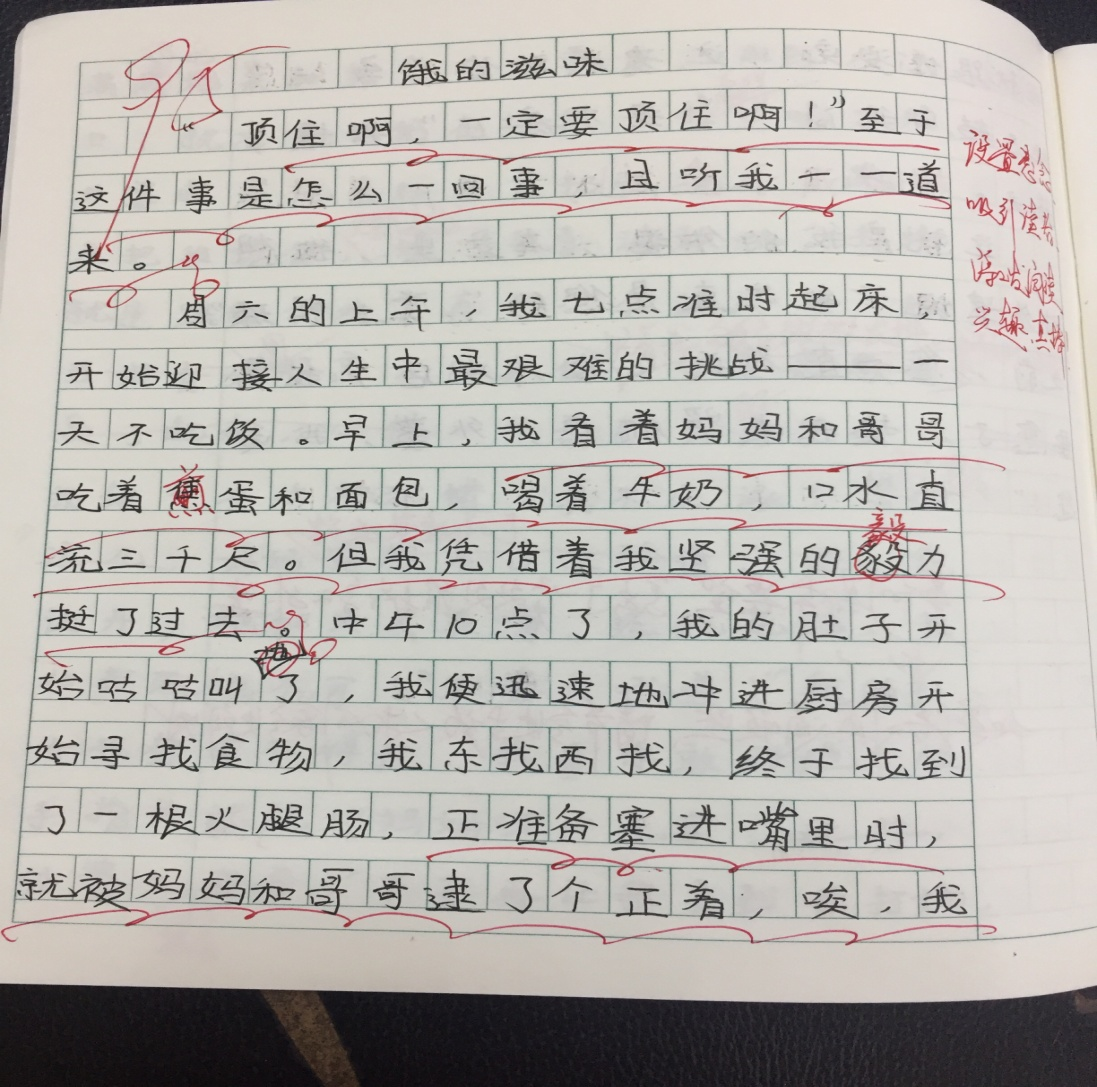 饿的滋味
“顶住啊，一定要顶住啊！”至于
这件事是怎么一回事，且听我一一道
来。
周六的上午，我七点准时起床，
开始迎接人生中最艰难的挑战——一
天不吃饭。早上，我看着妈妈和哥哥
吃着煎蛋和面包，喝着牛奶，口水直
流三千尺。但我凭借着我坚强的毅力
挺了过去。中午10点了，我的肚子开
始咕咕叫了，我便迅速地冲进厨房开
始寻找食物，我东找西找，终于找到
了一根火腿肠，正准备塞进嘴里时，
就被妈妈和哥哥逮了个正着，唉，我
设置悬念
吸引读者
激发阅读
兴趣真棒
毅